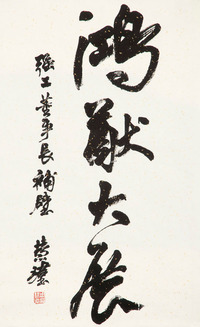 鴻猷大展
強工董事長補壁